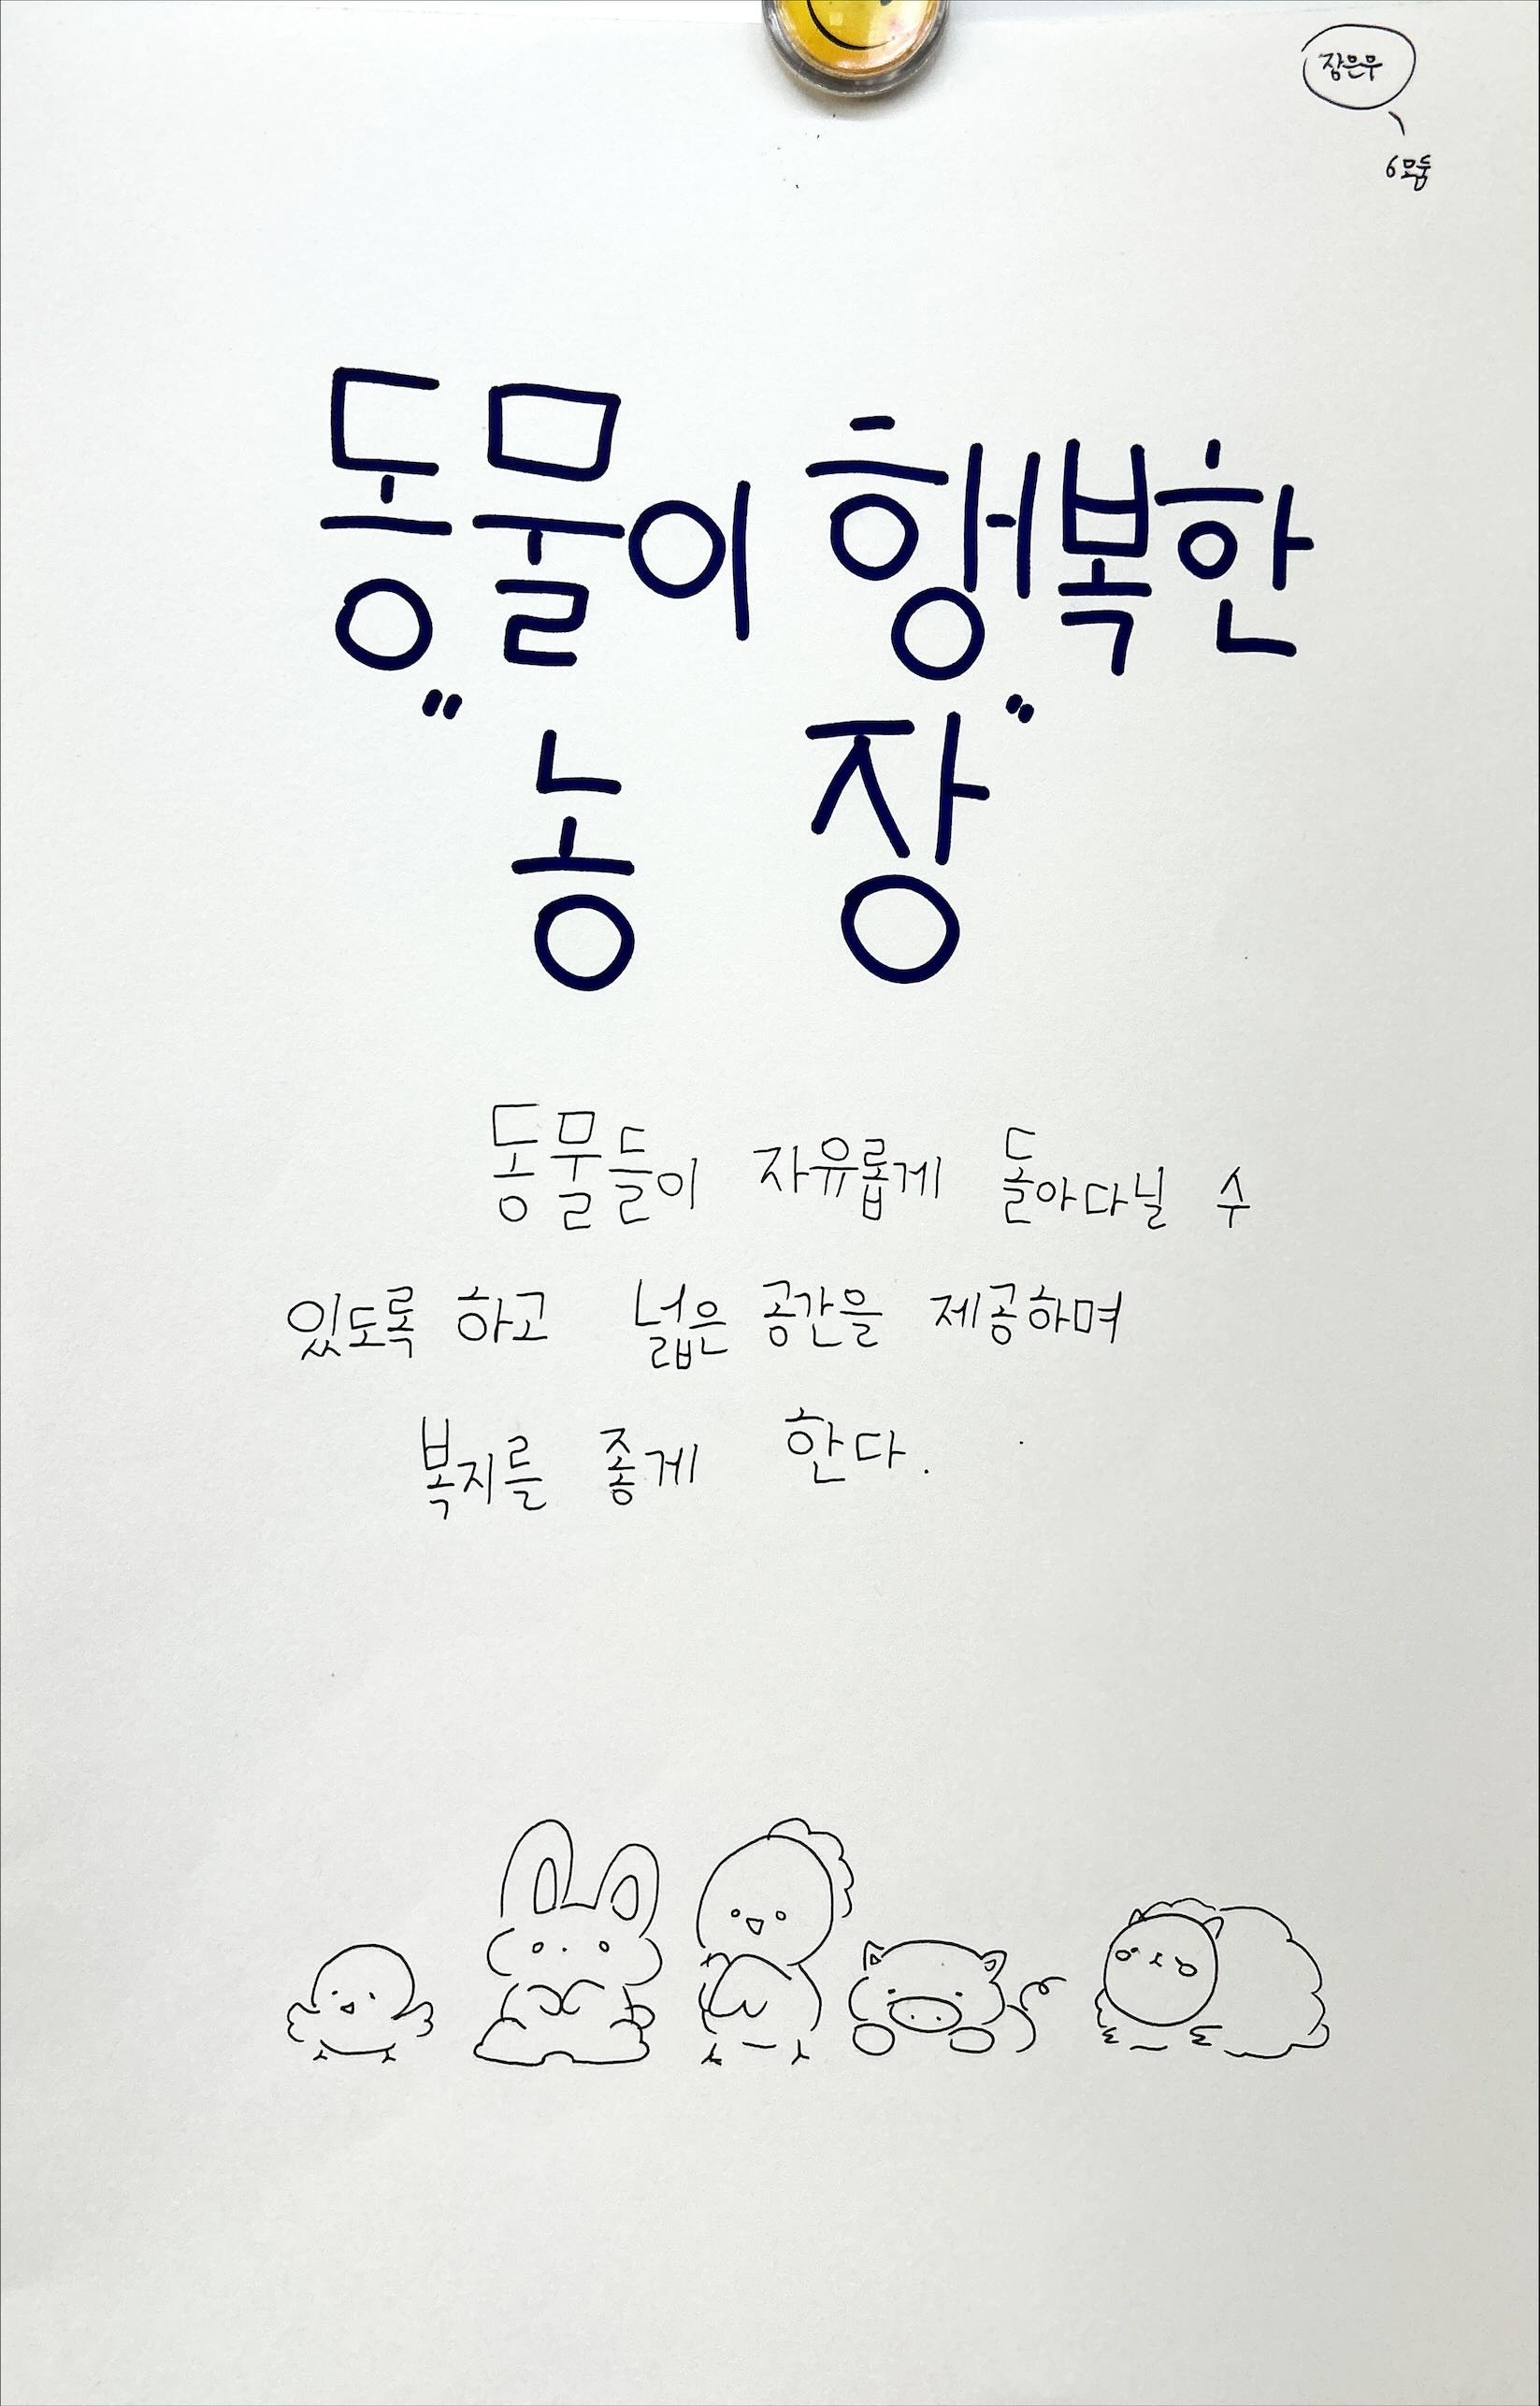 장은우
6모둠
동물이 행복한
"농장"
동물들이 자유롭게 돌아다닐 수
있도록 하고 넓은 공간을 제공하며
복지를 좋게 한다.